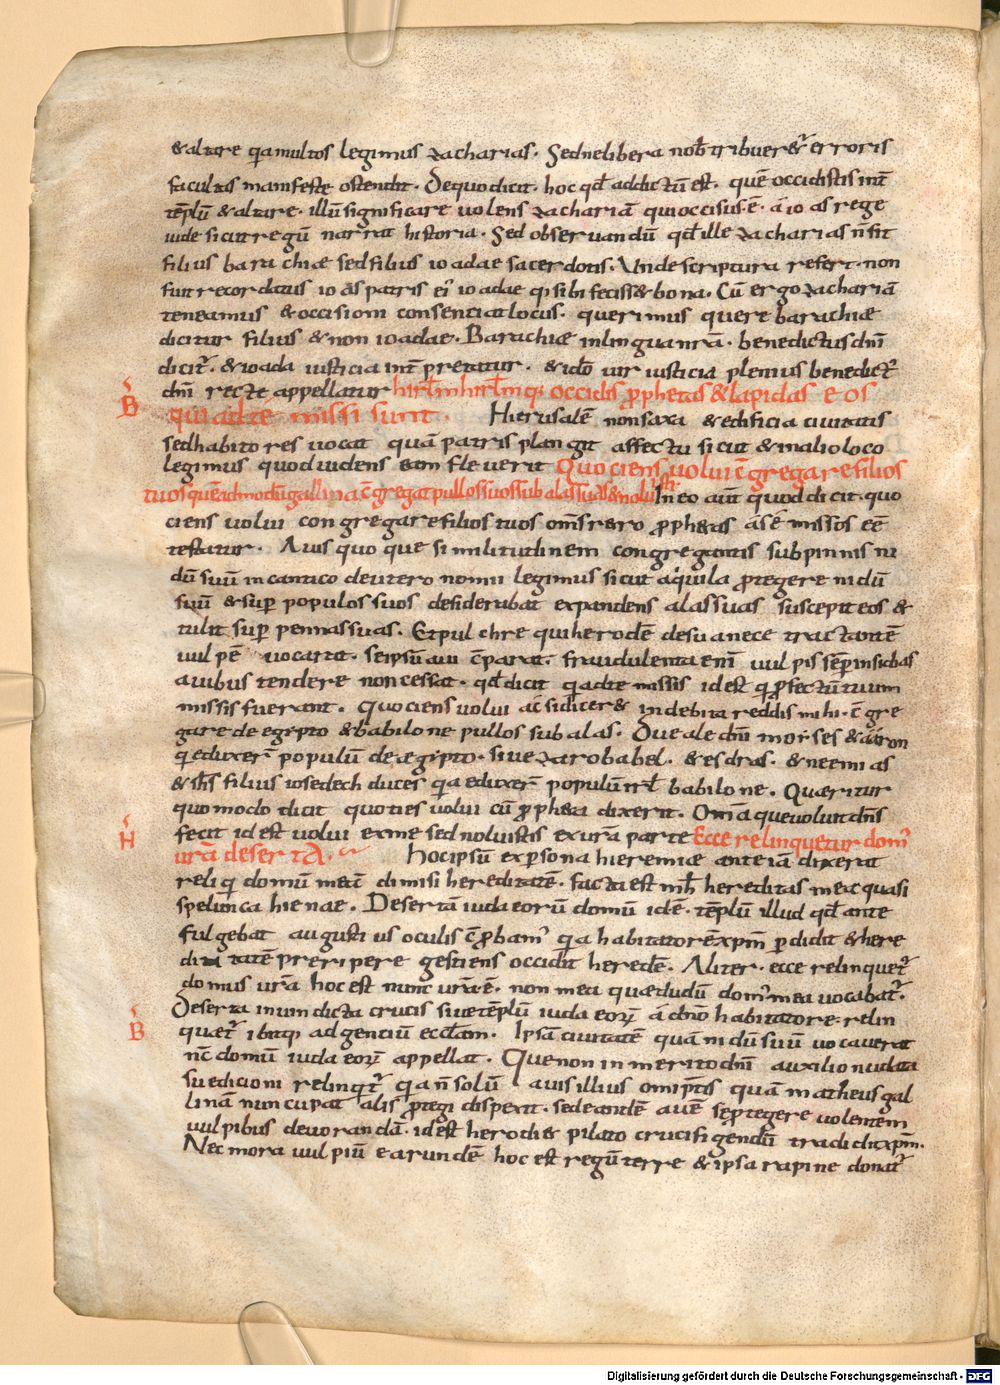 &altare qiamultos legimus zacharias. Sednelibera nob̄ tribuer&ur erroris
facultas manifeste ostendit. Dequodicit. hoc qđ addictū est. quē occidistis int̄
tēplū &altare. illū significare uolens zachariā quioccisus.ē. a ioas rege
iude sicut regū narrat historia. Sed obseruandū qđ ille zacharias n̄ sit
filius barachiæ sed filius ioadae sacerdotis. Unde scriptura refert. non
fuit recordatus ioas patris ei ioadae q sibi feciss& bona. Cū ergo zachariā
teneamus & occisioni consentiat locus. querimus quere barachiæ
dicitur filius & non ioadae. Barachiæ inlingua nrā. benedictus dn̄i
dicit. & ioada iusticia int̄pretatur. & idō uir iusticia plenus benedict
dn̄i recte appellatur hirlm̄ hirlm̄ q occidis pphetas & lapidas eos
B
qui adte missi sunt. Hierusalē non saxa & edificia ciuitatis
sed habitores uocat quā patris plangit affectu sicut & in alio loco
legimus quod uidens eam fleuerit Quociens uolui c̄gregare filios
tuos quēadmodū gallina c̄gregat pullos suos sub alas suas & nolu Ineo aūt quod dicit. quo
isti
ciens uolui congregare filios tuos om̄s rero pphetas a sē missos eē
testatur. Auis quoque similitudinem congregantis sub pinnis ni
dū suū incantico deuteronomii legimus sicut aquila ptegere nidū
suū & sup populos suos desiderabat expandens alas suas suscepit eos &
tulit sup pennas suas. Et pulchre qui herodē desua nece tractantē
uulpē uocarat. seipsū aui c̄parat. fraudulenta enī uulpis sēp insidias
auibus tendere non cessat. qđ dicit q adte missis id est q pfectū tuum
missis fuerant. Quociens uolui ac si dicer& indebita reddis mihi. c̄gre
gare de egipto & babilone pullos sub alas. Quale dn̄i moises & aaron
q eduxer populū de ægipto. siue zarobabel. & esdras. & neemias
& ihs filius iosedech duces qia eduxer populū isrl babilone. Quæritur
quomodo dicit quoties uolui cū ppheta dixerit. Omīa que uoluit dn̄s
fecit id est uolui ex me sed noluistis ex urā parte Ecce relinquetur dom
H
urā deserta. Hoc ipsū ex persona hieremiæ ante iā dixerat
reliqi domū meā dimisi hereditatē. facta est mī hereditas mea quasi
spelunca hienae. Desertā iudaeorū domū idē. tēplū illud qđ ante
fulgebat augustius oculis c̄pbam qia habitatorē xpm̄ pdidit & here
ditatē preripere gestiens occidit heredē. Aliter. ecce relinquet
domus urā hoc est nunc urā ē. non mea quæ dudū dom mea uocabat.
Deserta in undicta crucis siue tēplū iudaeorum a diuino habitatore. relin
B
quæt ibitq ad genciū eccl̄am. Ipsā ciuitatē quā nidū suū uocauerat
nc̄ domū iudaeorum appellat. Que non inmerito dn̄i auxilio nudata
suedicioni relinqt qia n̄ solū auis illius omip̄tis quā matheus gal
linā nuncupat alis ptegi dispexit. sed eandē auē se ptegere uolentem
uulpibus deuorandā. id est herodi & pilato crucifigendū tradidit xpm̄.
Nec mora uulpiū earundē hoc est regū terre & ipsa rapine donat
Digitalisierung gefördert durch die Deutsche Forschungsgemeinschaft - DFG